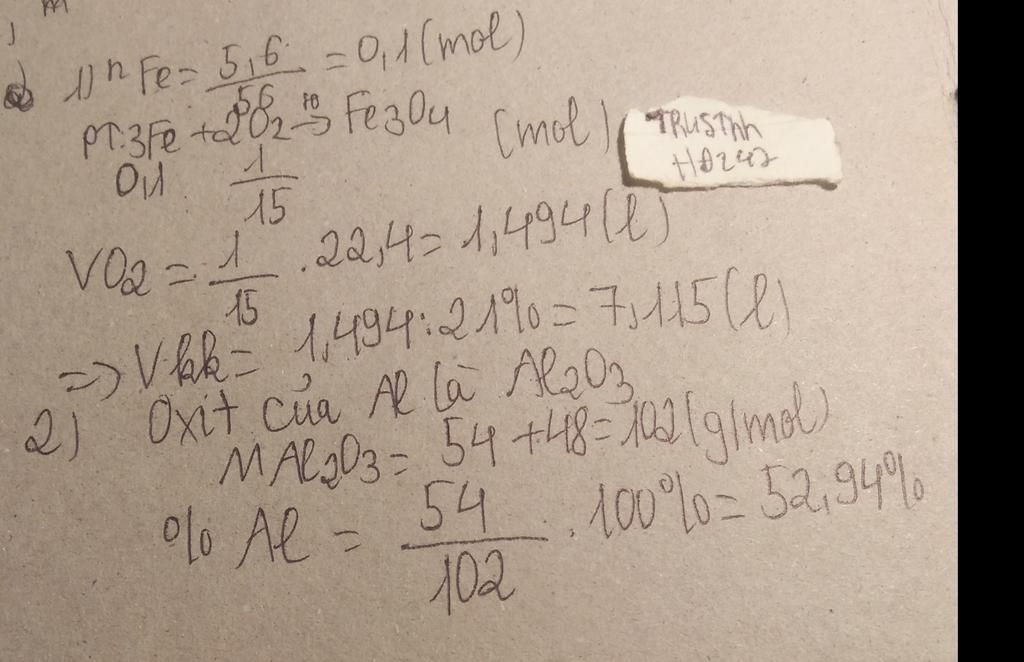 m
1) nFe = 5,6/56 = 0,1 (mol)
PT: 3Fe + 2O2 to→ Fe3O4 (mol)
0,1 1/15
TRUSTnh
HD247
VO2 = 1/15 . 22,4 = 1,494 (l)
=> Vkk = 1,494 : 21% = 7,115 (l)
2) Oxit của Al là Al2O3
MAl2O3 = 54 + 48 = 102 (g/mol)
% Al = 54/102 . 100% = 52,94%